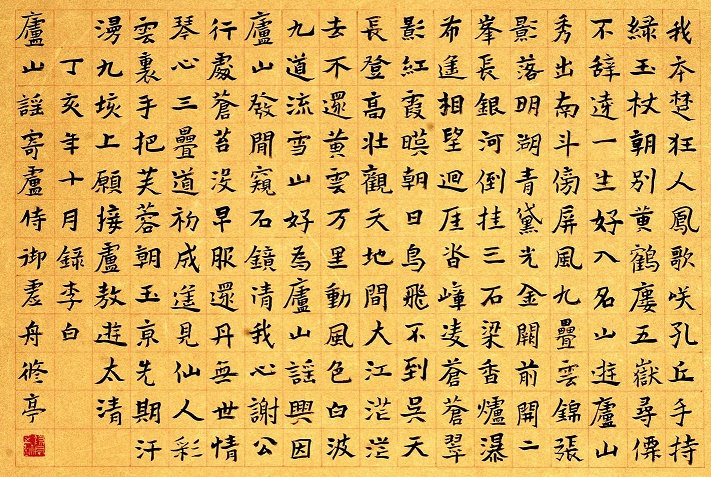 我本楚狂人鳳歌咲孔丘手持
綠玉杖朝別黃鶴廔五嶽尋僊
不辭逺一生好入名山遊廬山
秀出南斗傍屏風九疊雲錦張
影落明湖青黛光金闕前開二
峯長銀河倒挂三石梁香爐瀑
布遙相望迴厓沓嶂凌蒼蒼翠
影紅霞暎朝日鳥飛不到吳天
長登高壯觀天地間大江茫茫
去不還黃雲万里動風色白波
九道流雪山好為廬山謡興因
廬山發閒窺石鏡清我心謝公
行處蒼苔沒早服還丹無世情
琴心三疊道初成遥見仙人彩
雲裏手把芙蓉朝玉京先期汗
漫九垓上願接盧敖遊太清
丁亥年十月錄李白
廬山謡寄盧侍御虛舟修亭